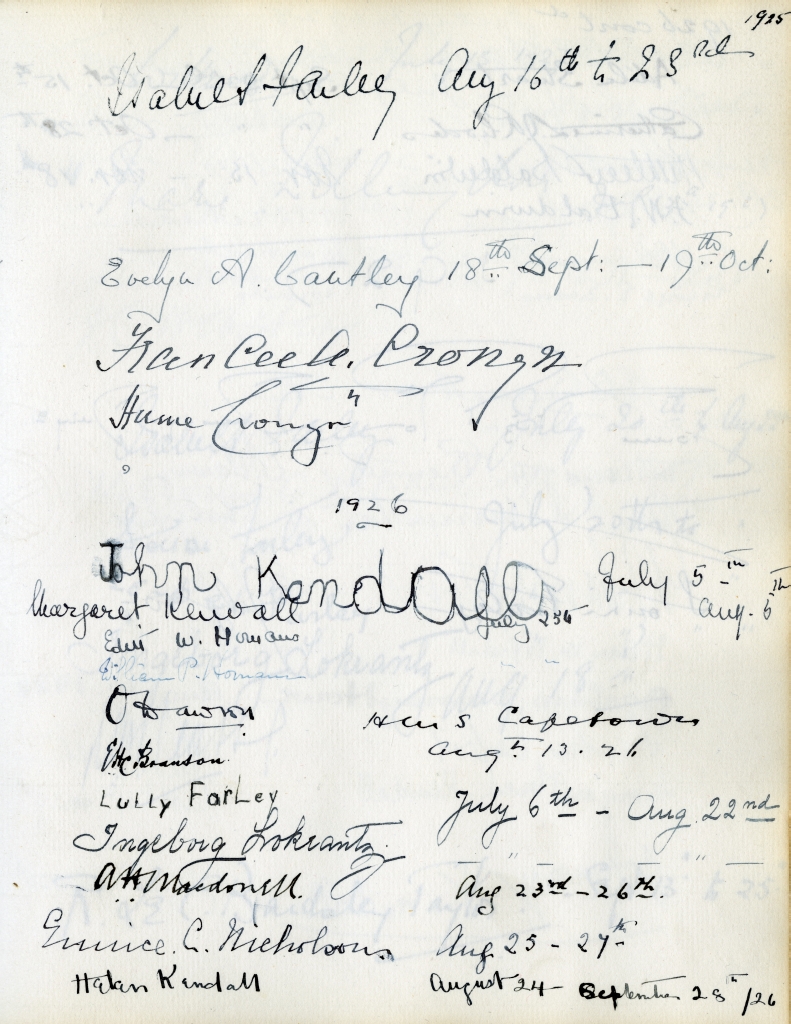 1925
Isabel S Farley Aug 16th to 23rd
Evelyn A. Cautley 18th Sept: — 19th Oct:
Cronyn
Hume Cronyn
1926
John Kendall July 5th -
Margaret Kendall Aug. 6th
Edith W. Homans July 25th
William P. Homans " "
O Dawson H.M.S Capetown
Aug 13. 26
Branson
LULLY FarLey July 6th - Aug 22nd
Ingeborg Lokrantz — " — " —
A H Macdonell. Aug 23rd - 26th.
Eunice. C. Nicholson. Aug 25 - 27th
Helen Kendall August 24 - September 28th /26